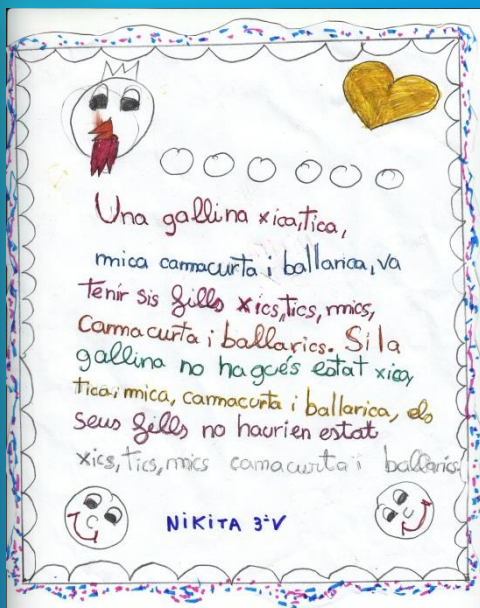 Una gallina xica, tica,
mica camacurta i ballarica, va
tenir sis fills xics, tics, mics,
Camacurta i ballarics. Si la
gallina no hagués estat xica,
tica i mica, camacurta i ballarica, els
seus fills no haurien estat
xics, tics, mics camacurta i ballarics
NiKiTA 3ºV